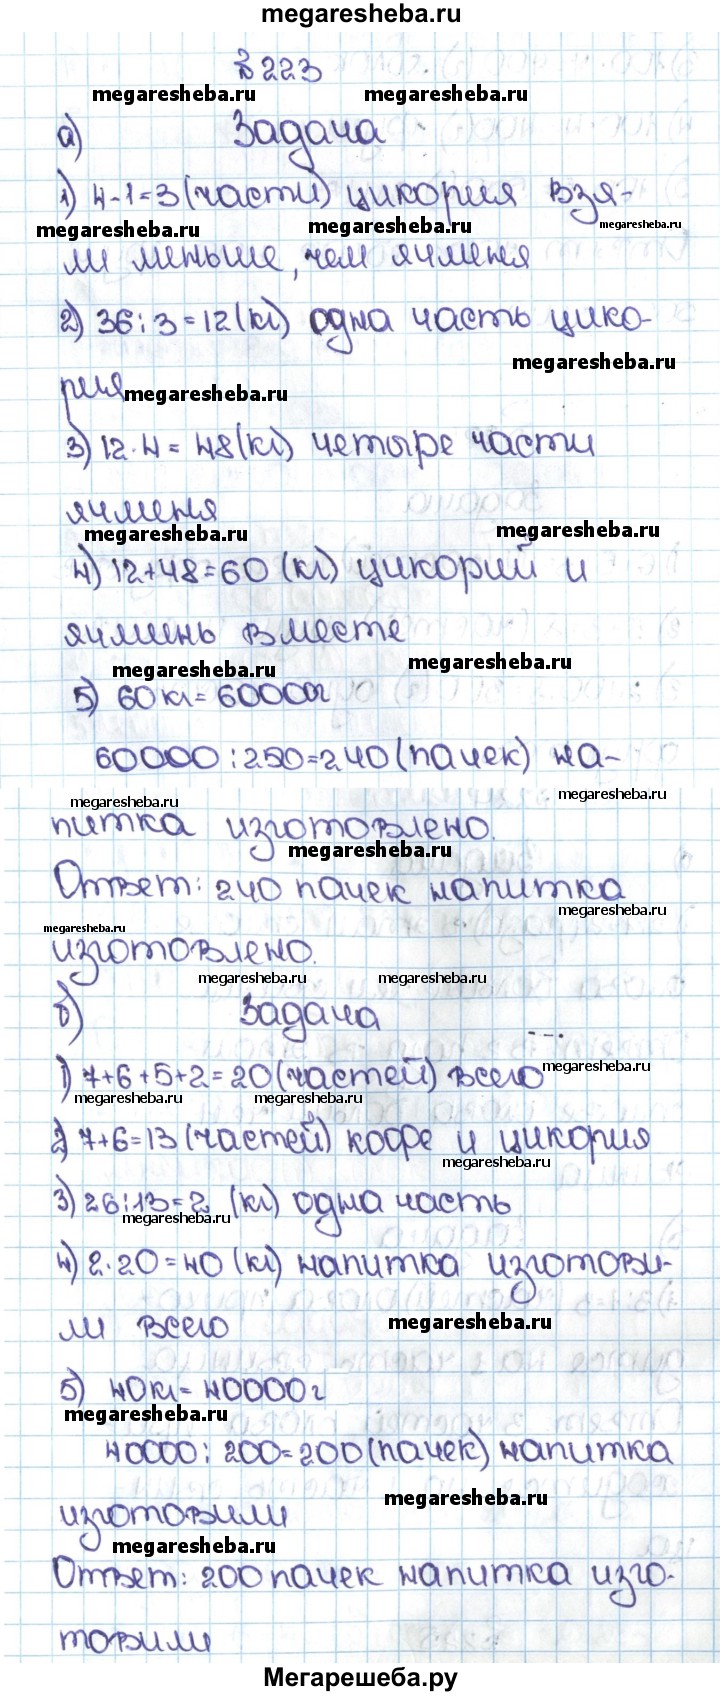 megaresheba.ru
№223
megaresheba.ru megaresheba.ru
а) Задача
1) 4-1=3 (части) цикория взя-
megaresheba.ru megaresheba.ru megaresheba.ru
ли меньше, чем ячменя
2) 36:3=12(кг) одна часть цико-
megaresheba.ru
рия
megaresheba.ru
3) 12·4=48(кг) четыре части
ячменя
megaresheba.ru megaresheba.ru
4) 12+48=60 (кг) цикорий и
ячмень вместе
megaresheba.ru megaresheba.ru
5) 60кг=60000г
60000:250=240(пачек) на-
megaresheba.ru megaresheba.ru
питка изготовлено.
megaresheba.ru
Ответ: 240 пачек напитка
megaresheba.ru megaresheba.ru
изготовлено.
megaresheba.ru megaresheba.ru
б) Задача
1) 7+6+5+2=20(частей) всего
megaresheba.ru
megaresheba.ru megaresheba.ru
2) 7+6=13 (частей) кофе и цикория
megaresheba.ru
3) 26:13=2 (кг) одна часть
megaresheba.ru
4) 2·20=40 (кг) напитка изготови-
ли всего
megaresheba.ru
5) 40кг=40000г
megaresheba.ru
40000:200=200(пачек) напитка
изготовили
megaresheba.ru
megaresheba.ru
Ответ: 200 пачек напитка изго-
товили
Мегарешеба.ру